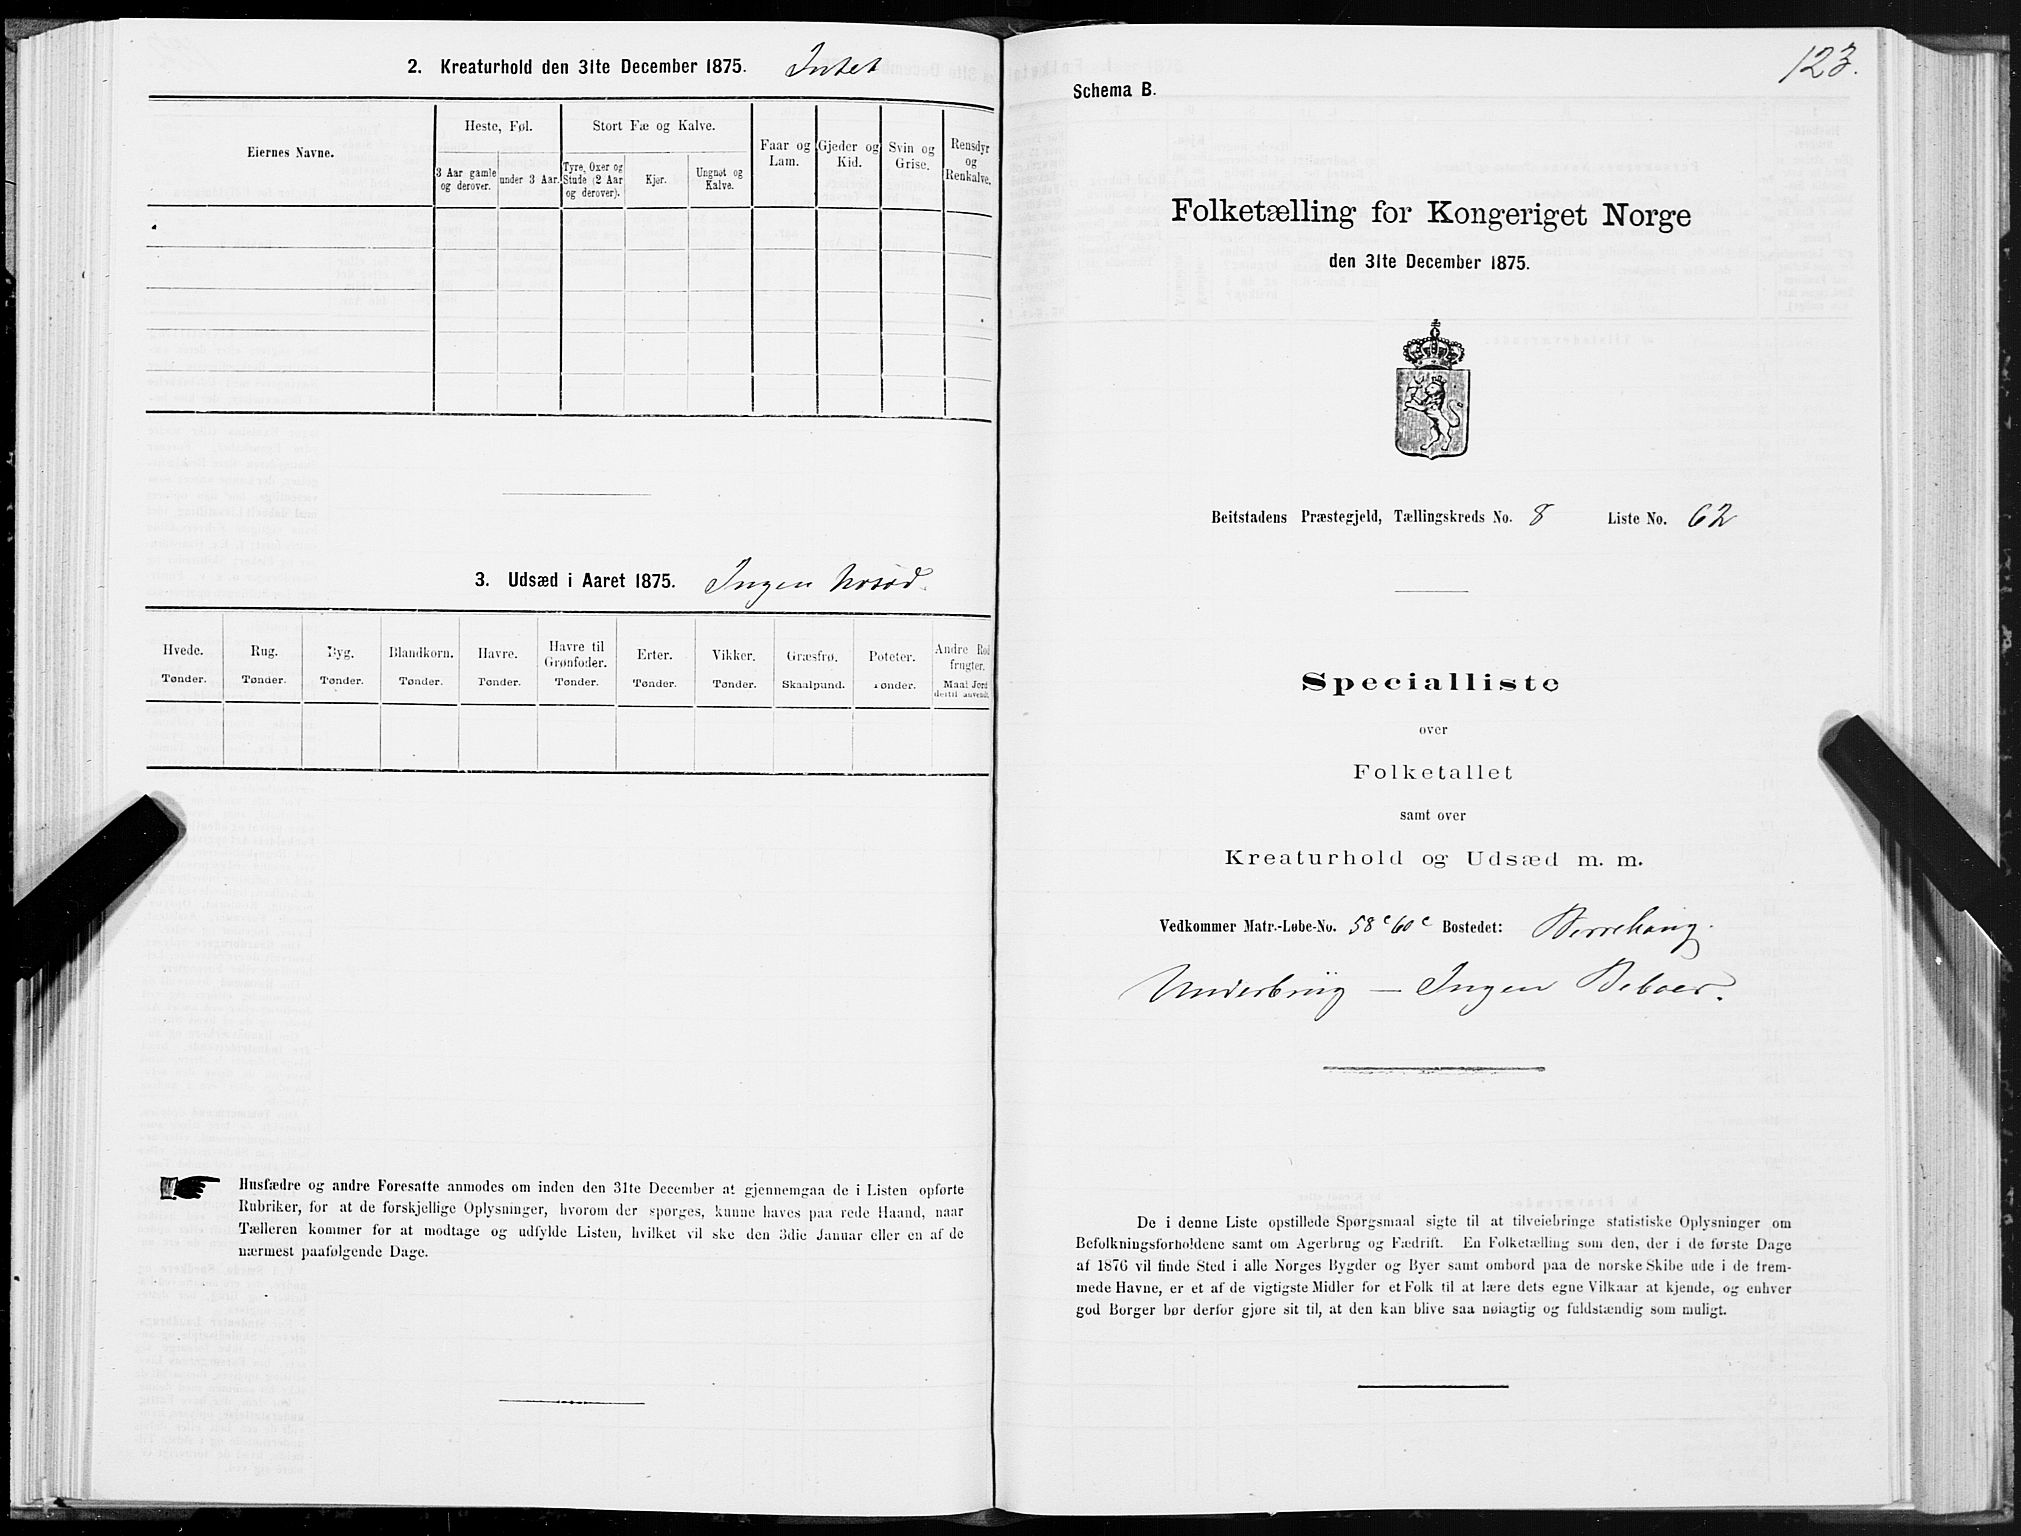 2. Kreaturhold den 31te December 1875. Intet
Eiernes Navne.
Heste, Føl.
3 Aar gamle og derover.
under 3 Aar.
Stort Fæ og Kalve.
Tyre, Oxer og Stude (2 Aar og derover).
Kjør.
Ungnøt og Kalve.
Faar og Lam.
Gjeder og Kid.
Svin og Grise.
Rensdyr og Renkalve.
3. Udsæd i Aaret 1875. Ingen Udsæd.
Hvede. Rug. Byg. Blandkorn. Havre. Havre til Grønfoder. Erter. Vikker. Græsfrø. Poteter. Andre Rodfrugter.
Tønder. Tønder. Tønder. Tønder. Tønder. Tønder. Tønder. Tønder. Skaalpund. Tønder. Maal Jord dertil anvendt.
Husfædre og andre Foresatte anmodes om inden den 31te December at gjennemgaa de i Listen opførte
Rubriker, for at de forskjellige Oplysninger, hvorom der spørges, kunne haves paa rede Haand, naar
Tælleren kommer for at modtage og udfylde Listen, hvilket vil ske den 3die Januar eller en af de
nærmest paafølgende Dage.
123.
Schema B.
Folketælling for Kongeriget Norge
den 31te December 1875.
Beitstadens Præstegjeld, Tællingskreds No. 8 Liste No. 62
Specialliste
over
Folketallet
samt over
Kreaturhold og Udsæd m. m.
Vedkommer Matr.-Løbe-No. 58c 60c Bostedet:
Underbrug — Ingen Beboer.
De i denne Liste opstillede Spørgsmaal sigte til at tilveiebringe statistiske Oplysninger om
Befolkningsforholdene samt om Agerbrug og Fædrift. En Folketælling som den, der i de første Dage
af 1876 vil finde Sted i alle Norges Bygder og Byer samt ombord paa de norske Skibe ude i de frem-
mede Havne, er et af de vigtigste Midler for et Folk til at lære dets egne Vilkaar at kjende, og enhver
god Borger bør derfor gjøre sit til, at den kan blive saa nøiagtig og fuldstændig som muligt.